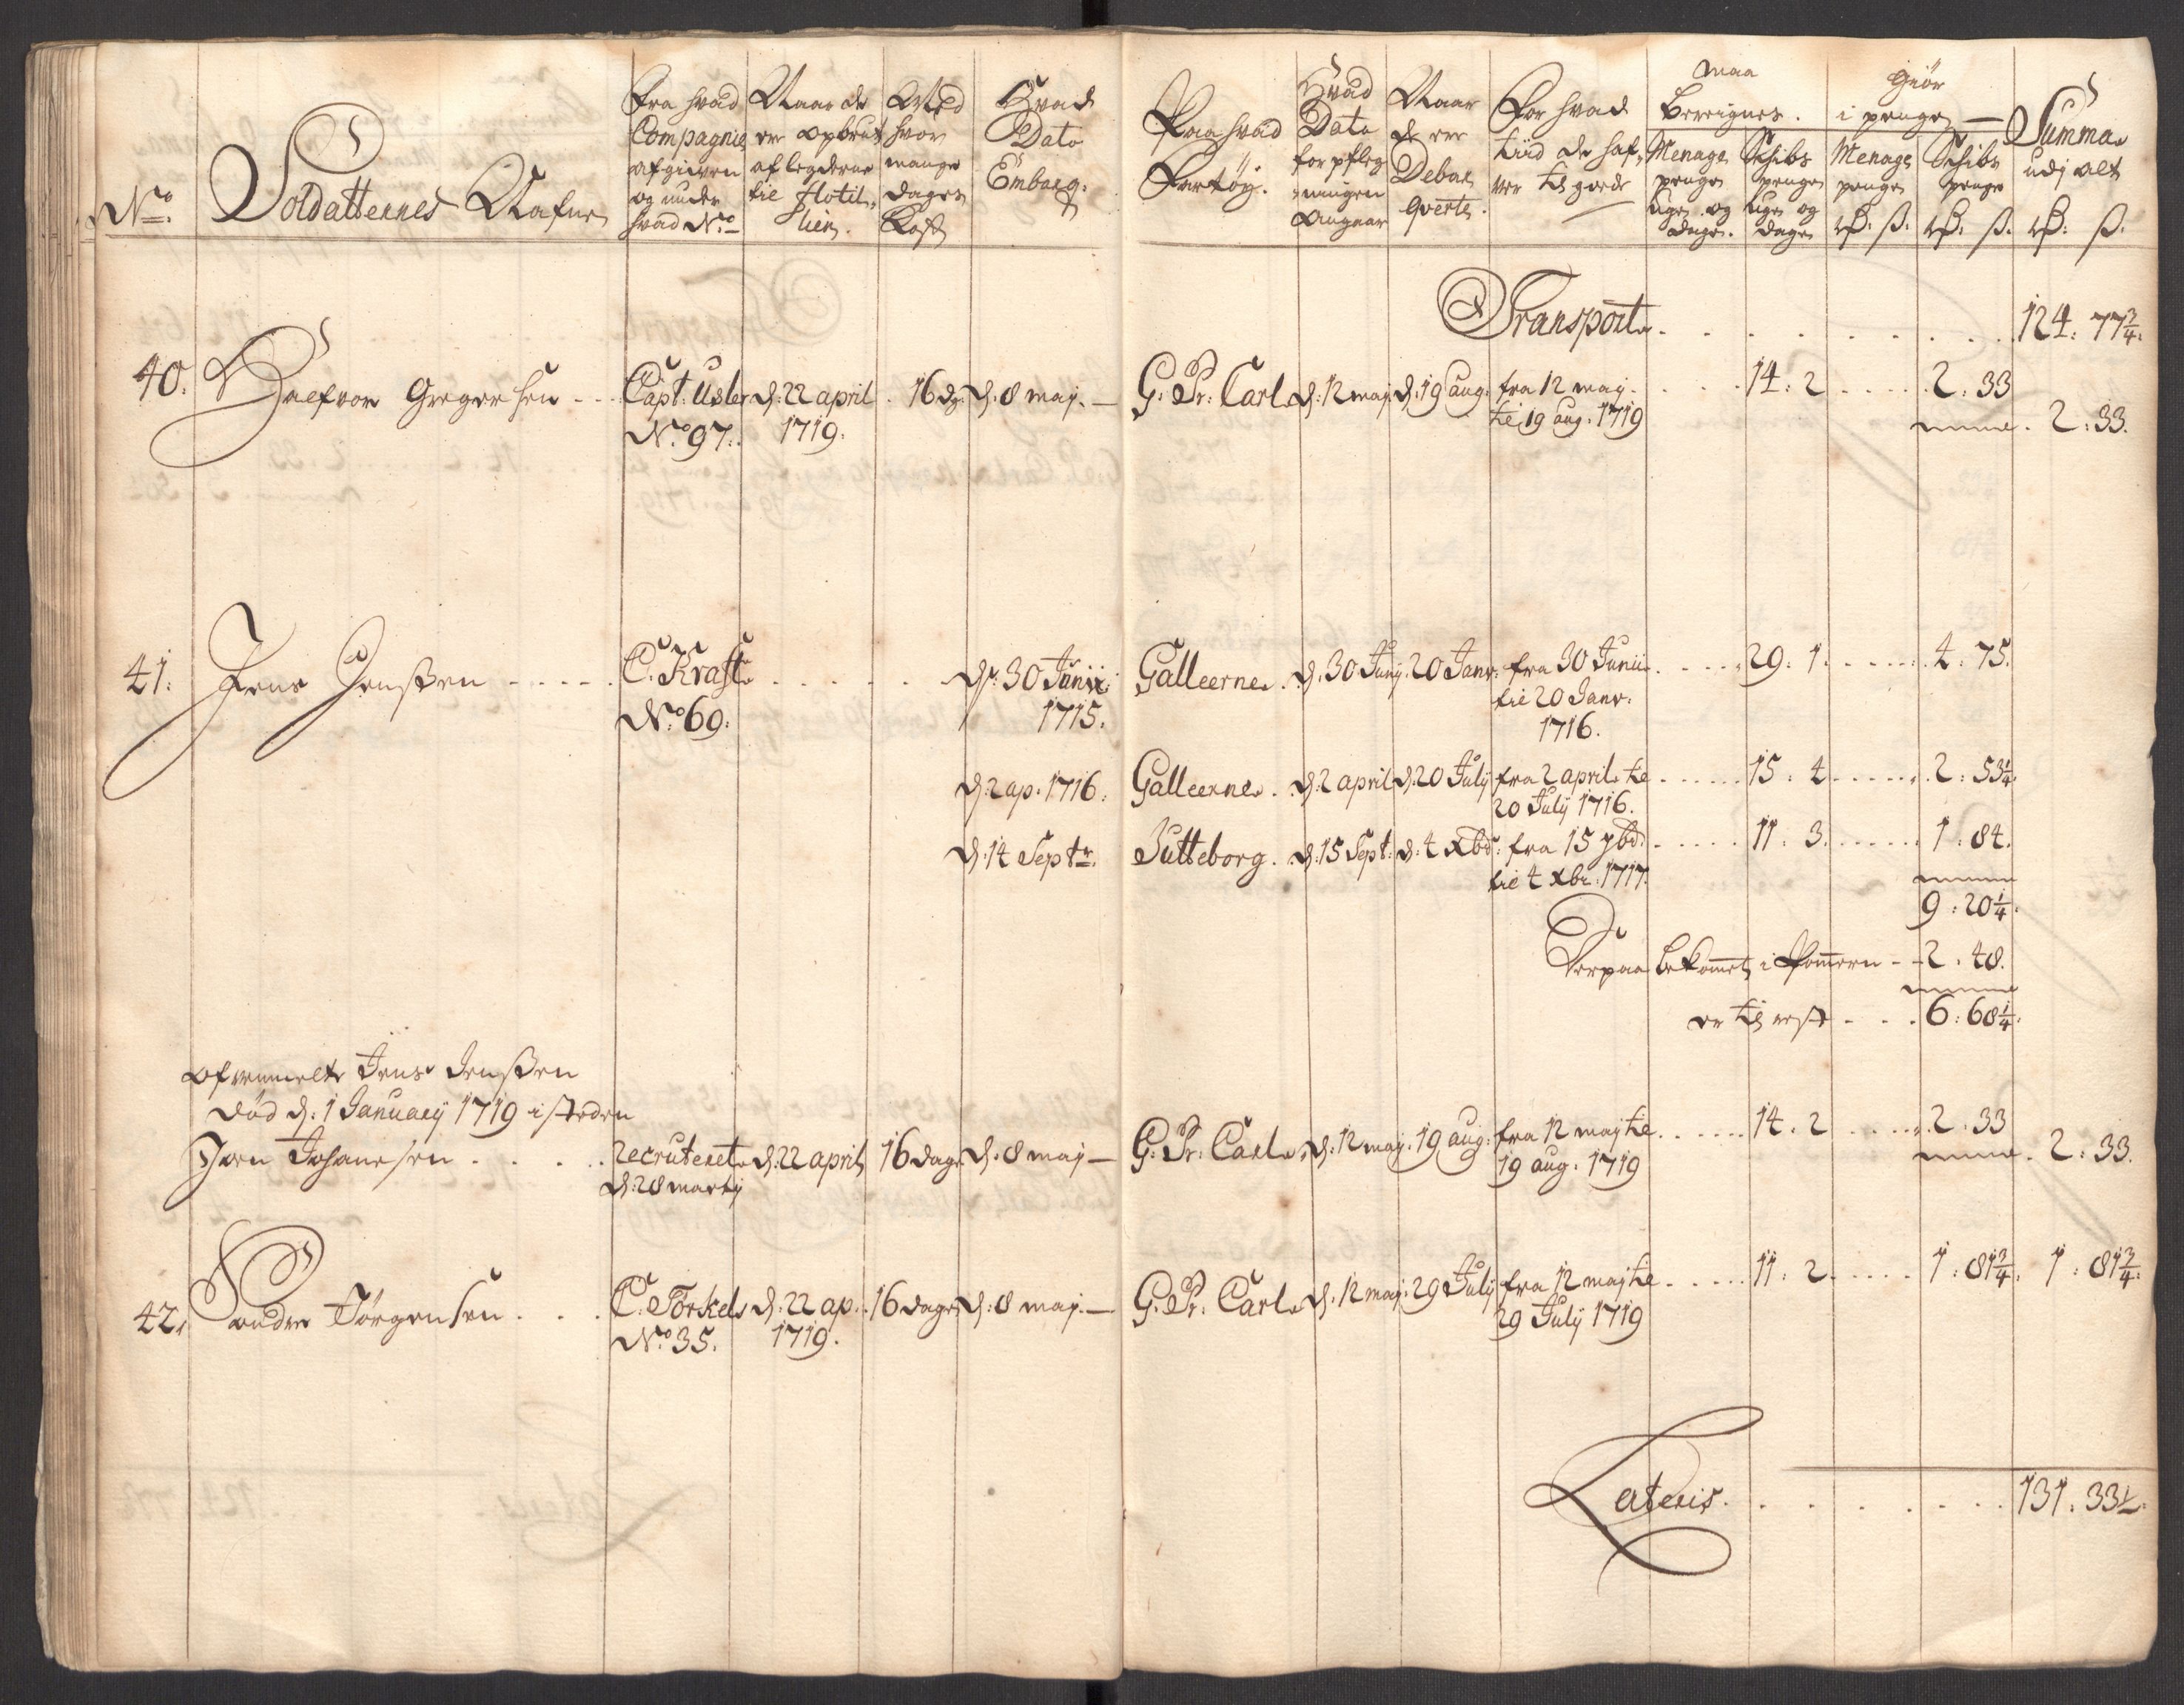 No.
Soldatternes Nafne
fra hvad
Compagnie
afgiven
og under
hvad No.
Naar de
er opbrut
af legderne
til Flotil-
lien.
Med
hvor
mange
dages
Kost
Hvad
Dato
Embarq:
Paa hvad
Fartøy.
Hvad
Dato
forpfleg-
ningen
Angaar
Naar
de ere
Debar-
qverte.
For hvad
tiid de haf-
ver til gode
maa
Bereignes.
Menage
penge
uger og
dage.
Schibs
penge
uger og
dage
Giør
i penge
Menage
penge
rd. ß.
Schibs
penge
rd. ß.
Summa
udj alt
rd: ß.
Transport . . . 124: 77 3/4.
40. Halfvor Gregersen - - Capt: Usler d: 22 april . 16 dg. d. 8 maj. — G: Pr: Carl d: 12 maj d. 19 aug: fra 12 maj . . . 14: 2 . . . . 2: 33
No 97. 1719. til 19 aug: 1719 2: 33.
41: Jens Jenßen - - - - - C. Kraft . . . . . . d. 30 Junii Galleerne. d. 30 Junj. 20 Janr: fra 30 Junii . . . . 29: 1. . . . . . 4: 75.
No 69: 1715. til 20 Janr:
1716.
d. 2 ap. 1716. Galleerne. d. 2 april d. 20 Julij fra 2 april til . . . . . 15: 4 . . . . . 2: 53 1/4
20 Julij 1716.
d. 14 Septr. Jutteborg. d. 15 Sept: d: 4 Xbr: fra 15 7br. . . . . . 11: 3. . . . . . 1: 84.
til 4 Xbr: 1717.
9: 20 1/4.
Derpaa bekommet i Pommern - - 2: 48.
er til rest - - - 6: 68 1/4.
ofvenmelte Jens Jenßen
død d: 1 January 1719 i steden
Joen Johanesen . . . . . recruteret d: 22 april 16 dage d. 8 maj — G: Pr: Carl d: 12 maj. 19 aug: fra 12 maj til . . . . . 14. 2 . . . . 2: 33
d: 28 martij 19 aug: 1719 2: 33.
42. Sander Jørgensen . . . C. Torkels d: 22 ap. . 16 dage d: 8 maj. — G: Pr: Carl d: 12 maj. 29 Julij fra 12 maj til . . . . . 11: 2. . . . . 1: 81 3/4. 1: 81 3/4.
No 35. 1719. 29 Julij 1719
Lateris. . . . . . . . 131: 33 1/2.